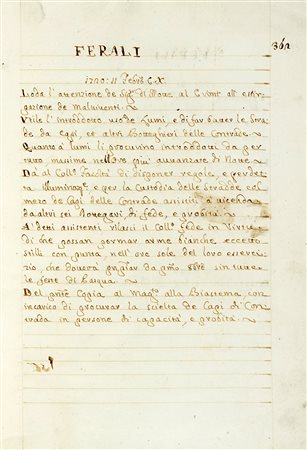 FERALI
362
1720: 11 Febb: C.X.
Loda l'attenzione de Sig:ri di Notte al Crim:l all' estir=
pazione de Malviventi.
Utile l'introdotto uso de Lumi, e di far batter le Stra=
de da Capi, et altri Botteghieri delle Contrade.
Quanto a' lumi li procurino introdotti da per
tutto massime nell'ore più avvanzate di Notte
Dà al Coll:o facoltà di disponer regole, e per detta
illuminaz:e, e per la Custodia delle Stradde col
mezzo de Capi delle Contrade assistiti a vicenda
da altri sei Bottegari di fede, e probità.
A detti assistenti rilasci il Coll:o fede in virtù
di che possan portar arme bianche eccetto
stilli con punta, nell'ore sole del loro eserci=
zio, che doverà principiar da 
le feste di Pasqua.
Del p:nte Copia al Mag:to alla Biastema, con
incarico di procurar la scielta de Capi di Con=
trada in persone di capacità, e probità.